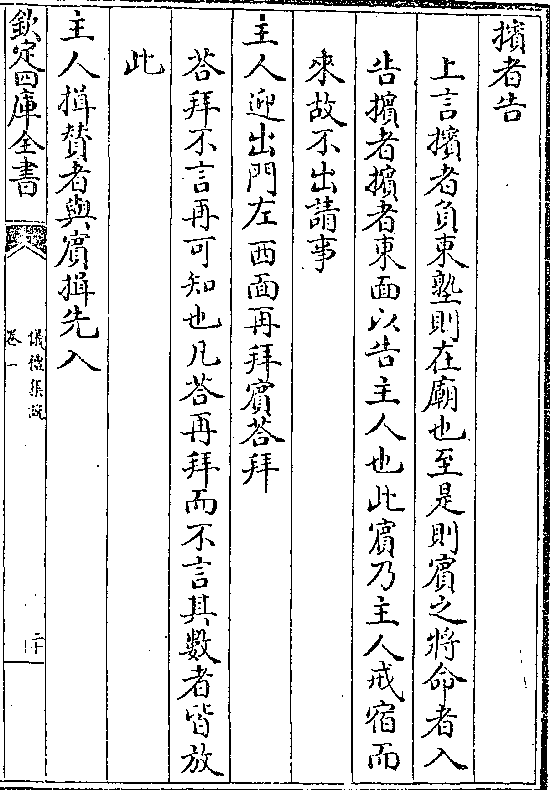 擯者告
上言擯者負東塾則在廟也至是則賔之將命者入
告擯者擯者東面以告主人也此賔乃主人戒宿而
來故不出請事
主人迎出門左西面再拜賔荅拜
荅拜不言再可知也凡荅再拜而不言其數者皆放
此
主人揖贊者與賔揖先入
欽定四庫全書
儀禮集說
卷一
二十